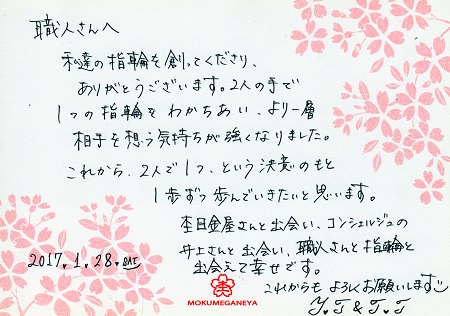 職人さんへ
私達の指輪を創ってくださり、
ありがとうございます。2人の手で
1つの指輪をわかちあい、より一層
相手を想う気持ちが強くなりました。
これから、2人で1つ、という決意のもと
1歩ずつ歩んでいきたいと思います。
杢目金屋さんと出会い、コンシェルジュの
井上さんと出会い、職人さんと指輪と
出会えて幸せです。
これからもよろしくお願いします
2017.1.28.SAT
Y.T & T.T
MOKUMEGANEYA